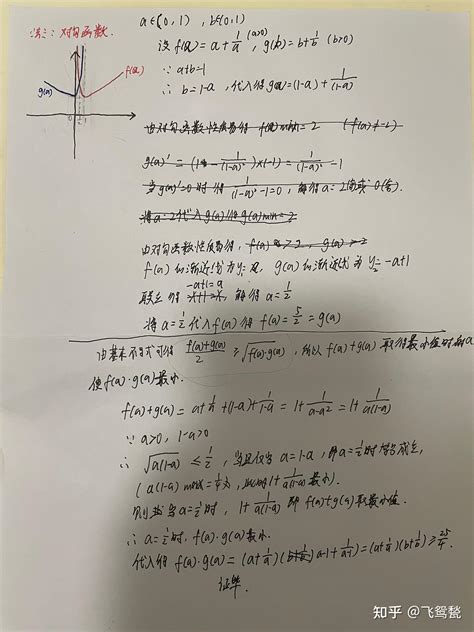 法三:对勾函数.
a∈(0,1), b∈(0,1)
设 f(a)=a+1/a (a>0), g(b)=b+1/b (b>0)
∵ a+b=1
∴ b=1-a, 代入得 g(a)=(1-a)+1/(1-a)
g(a) f(a)
0 1
由对勾函数性质易得 f(a)min=2
g(a)'=(1-1/(1-a)²)×(-1)=1/(1-a)²-1
当 g(a)'=0 时 得 1/(1-a)²-1=0, 解得 a=2(舍)或0(舍).
将 a=2代入g(a)得g(a)min=2
由对勾函数性质易得, f(a)≥2, g(a)≥2
f(a)的渐近线为y=a, g(a)的渐近线为 y=-a+1
联立得 -a+1=a, 解得 a=1/2
将 a=1/2 代入f(a) 得 f(a)=5/2=g(a)
由基本不等式可得 (f(a)+g(a))/2 ≥√(f(a)·g(a)), 所以 f(a)+g(a) 取得最小值时的a
使 f(a)·g(a)最小.
f(a)+g(a)=a+1/a+(1-a)+1/(1-a)=1+1/(a-a²)=1+1/(a(1-a))
∵ a>0, 1-a>0
∴ √(a(1-a)) ≤1/2, 当且仅当 a=1-a, 即a=1/2时 等号成立,
(a(1-a)max=1/4, 此时1+1/(a(1-a))最小).
则当a=1/2时, 1+1/(a(1-a)) 即 f(a)+g(a)取最小值.
∴ a=1/2时, f(a)·g(a)最小.
代入得 f(a)·g(a)=(a+1/a)(a-1+1/(a-1))=(a+1/a)(b+1/b)≥25/4.
证毕.
知乎 @飞鸳甃